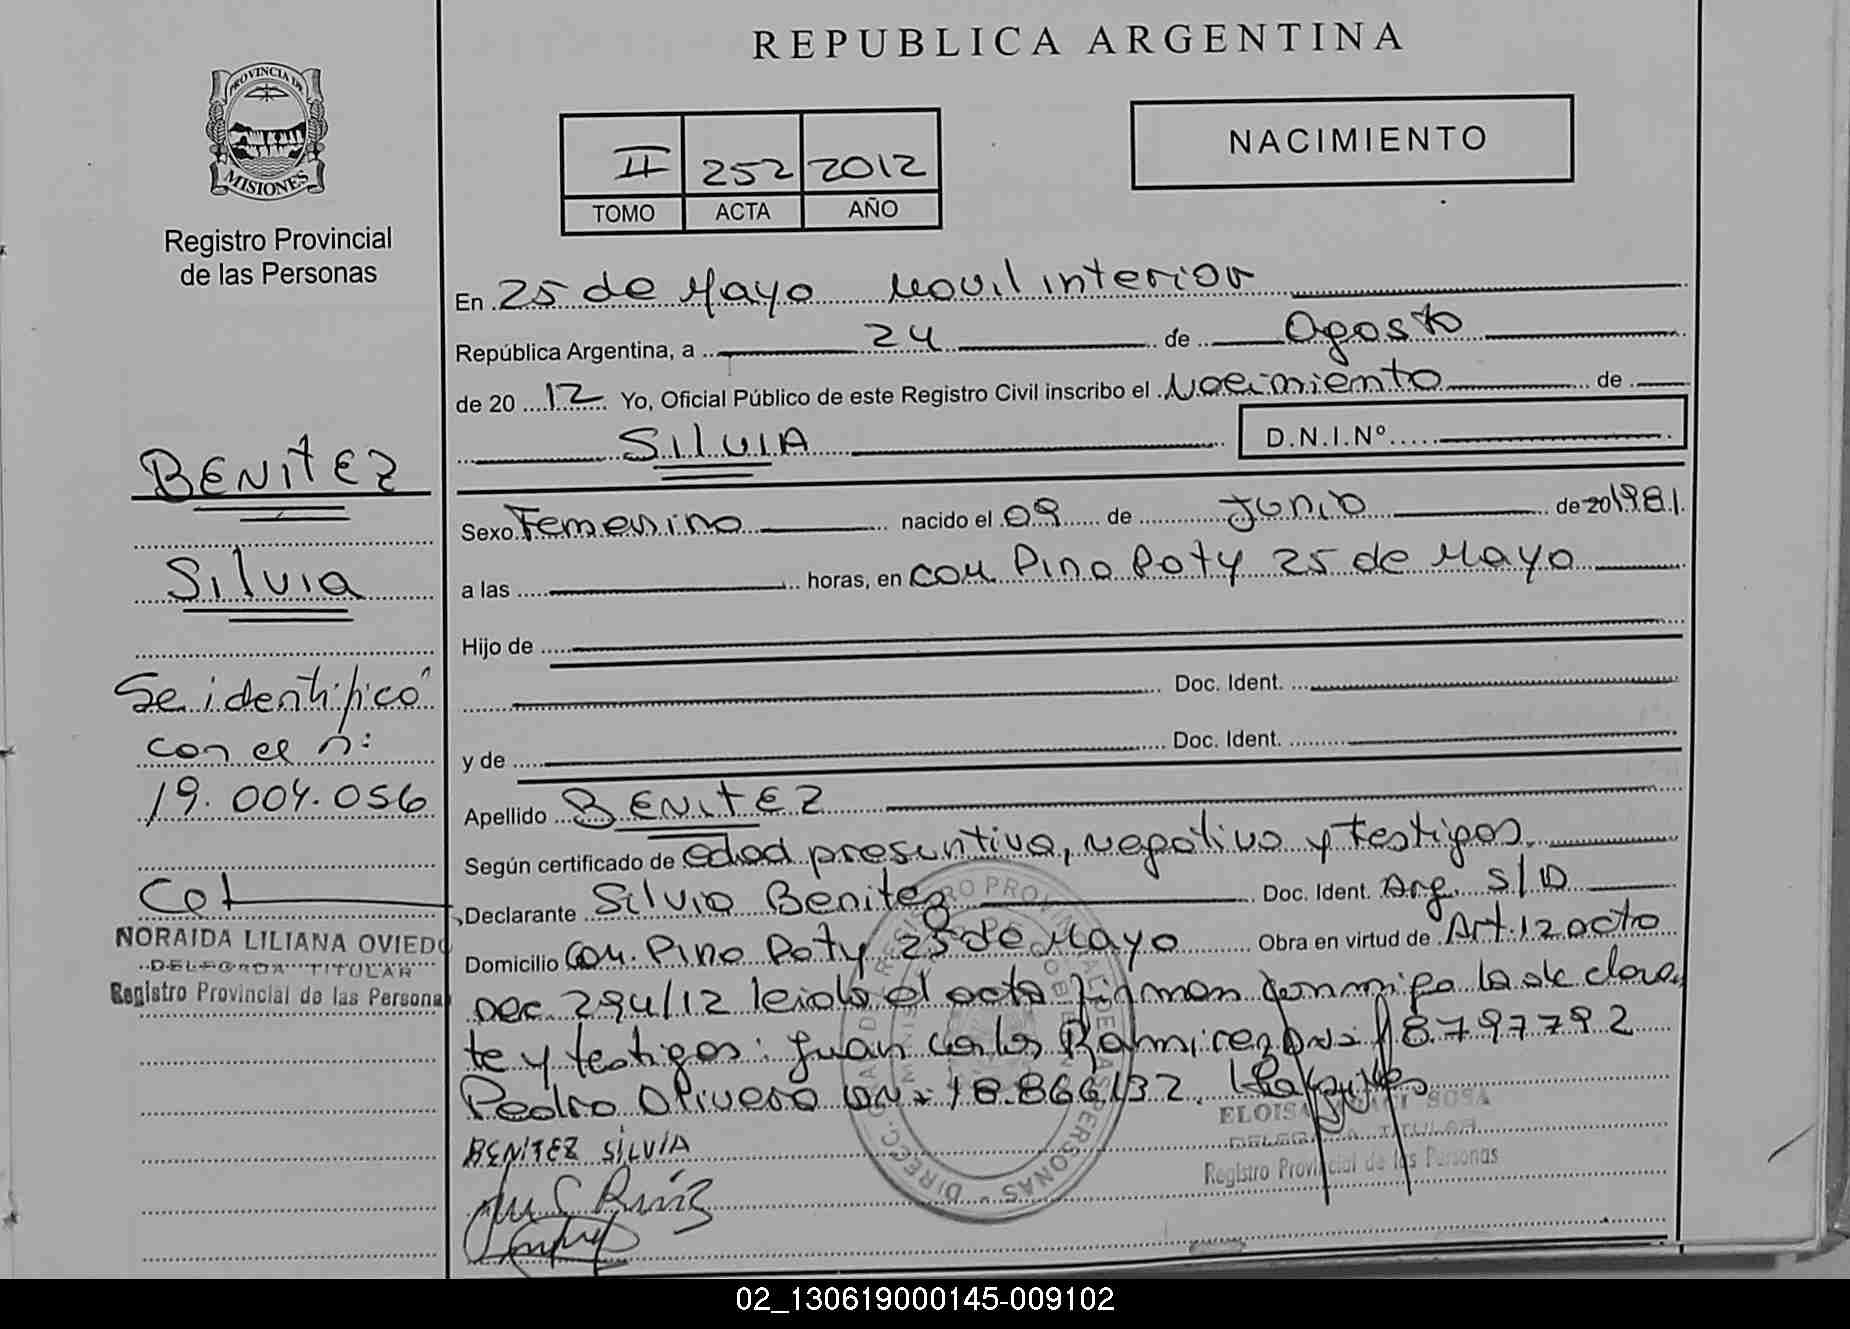 REPUBLICA ARGENTINA
PROVINCIA DE
MISIONES
Registro Provincial
de las Personas
II 252 2012
TOMO ACTA AÑO
NACIMIENTO
En 25 de Mayo Movil interior
República Argentina, a 24 de Agosto
de 2012 Yo, Oficial Público de este Registro Civil inscribo el Nacimiento de
SILVIA D.N.I.Nº
Sexo Femenino nacido el 09 de Junio de 20 1981.
a las horas, en com. Pino Poty 25 de Mayo
Hijo de
Doc. Ident.
y de Doc. Ident.
Apellido BENITEZ
Según certificado de edad presuntiva, negativo y testigos.
Declarante Silvia Benitez Doc. Ident. Arg. S/D
Domicilio com. Pino Poty 25 de Mayo Obra en virtud de Art. 12 acto
Dec. 294/12 leida el acta firman conmigo la declaran
te y testigos: Juan Carlos Ramirez DNI 18.797792
Pedro Olivera DNI 18.866132.
BENITEZ SILVIA
ELOISA SOSA
DELEGADA TITULAR
Registro Provincial de las Personas
BENITEZ
Silvia
Se identificó
con el n:
19.004.056
NORAIDA LILIANA OVIEDO
DELEGADA TITULAR
Registro Provincial de las Persona
02_130619000145-009102